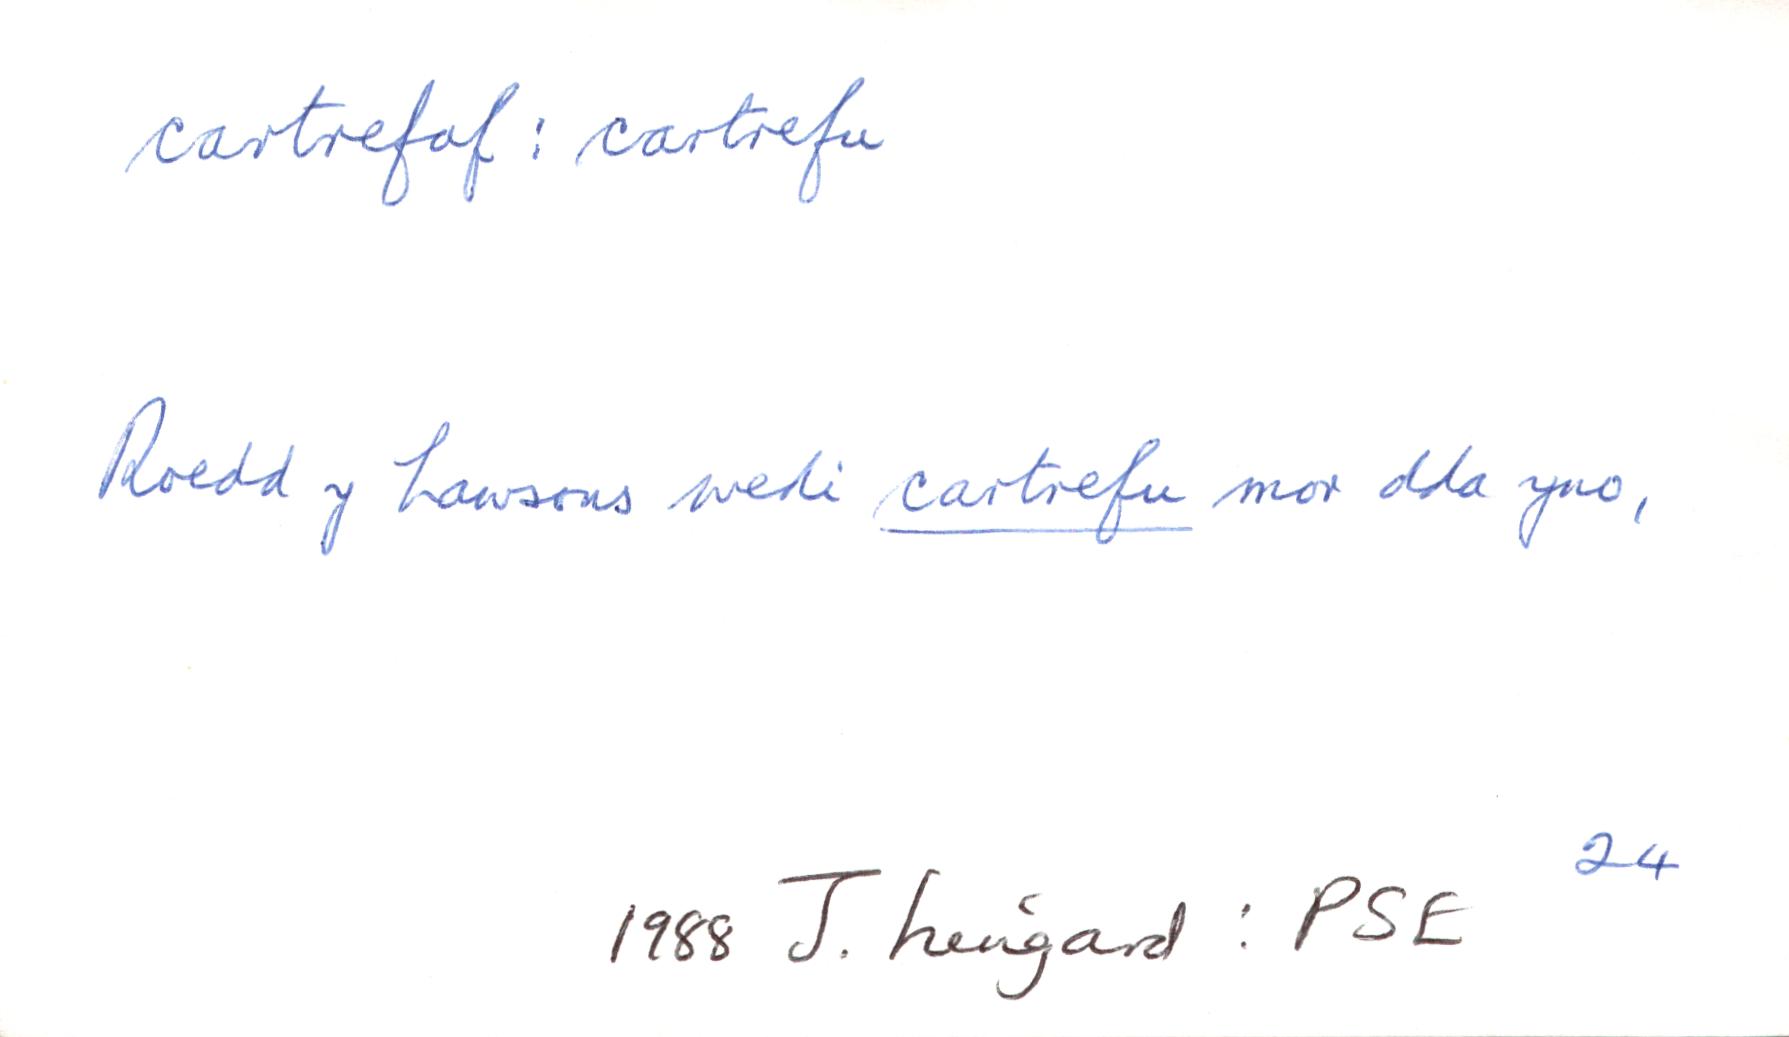 cartrefaf : cartrefu
Roedd y Lawsons wedi cartrefu mor dda yno,
24
1988 J. Heingard : PSE